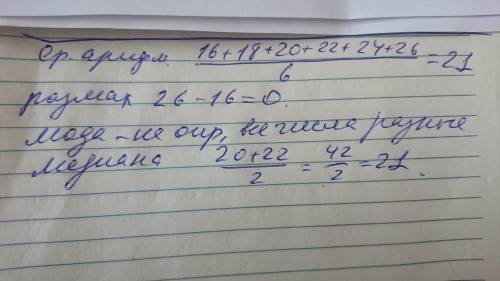 Ср. арифм. (16+18+20+22+24+26)/6 = 21
размах 26-16=0.
мода - не опр, все числа разные
медиана (20+22)/2 = 42/2 = 21.